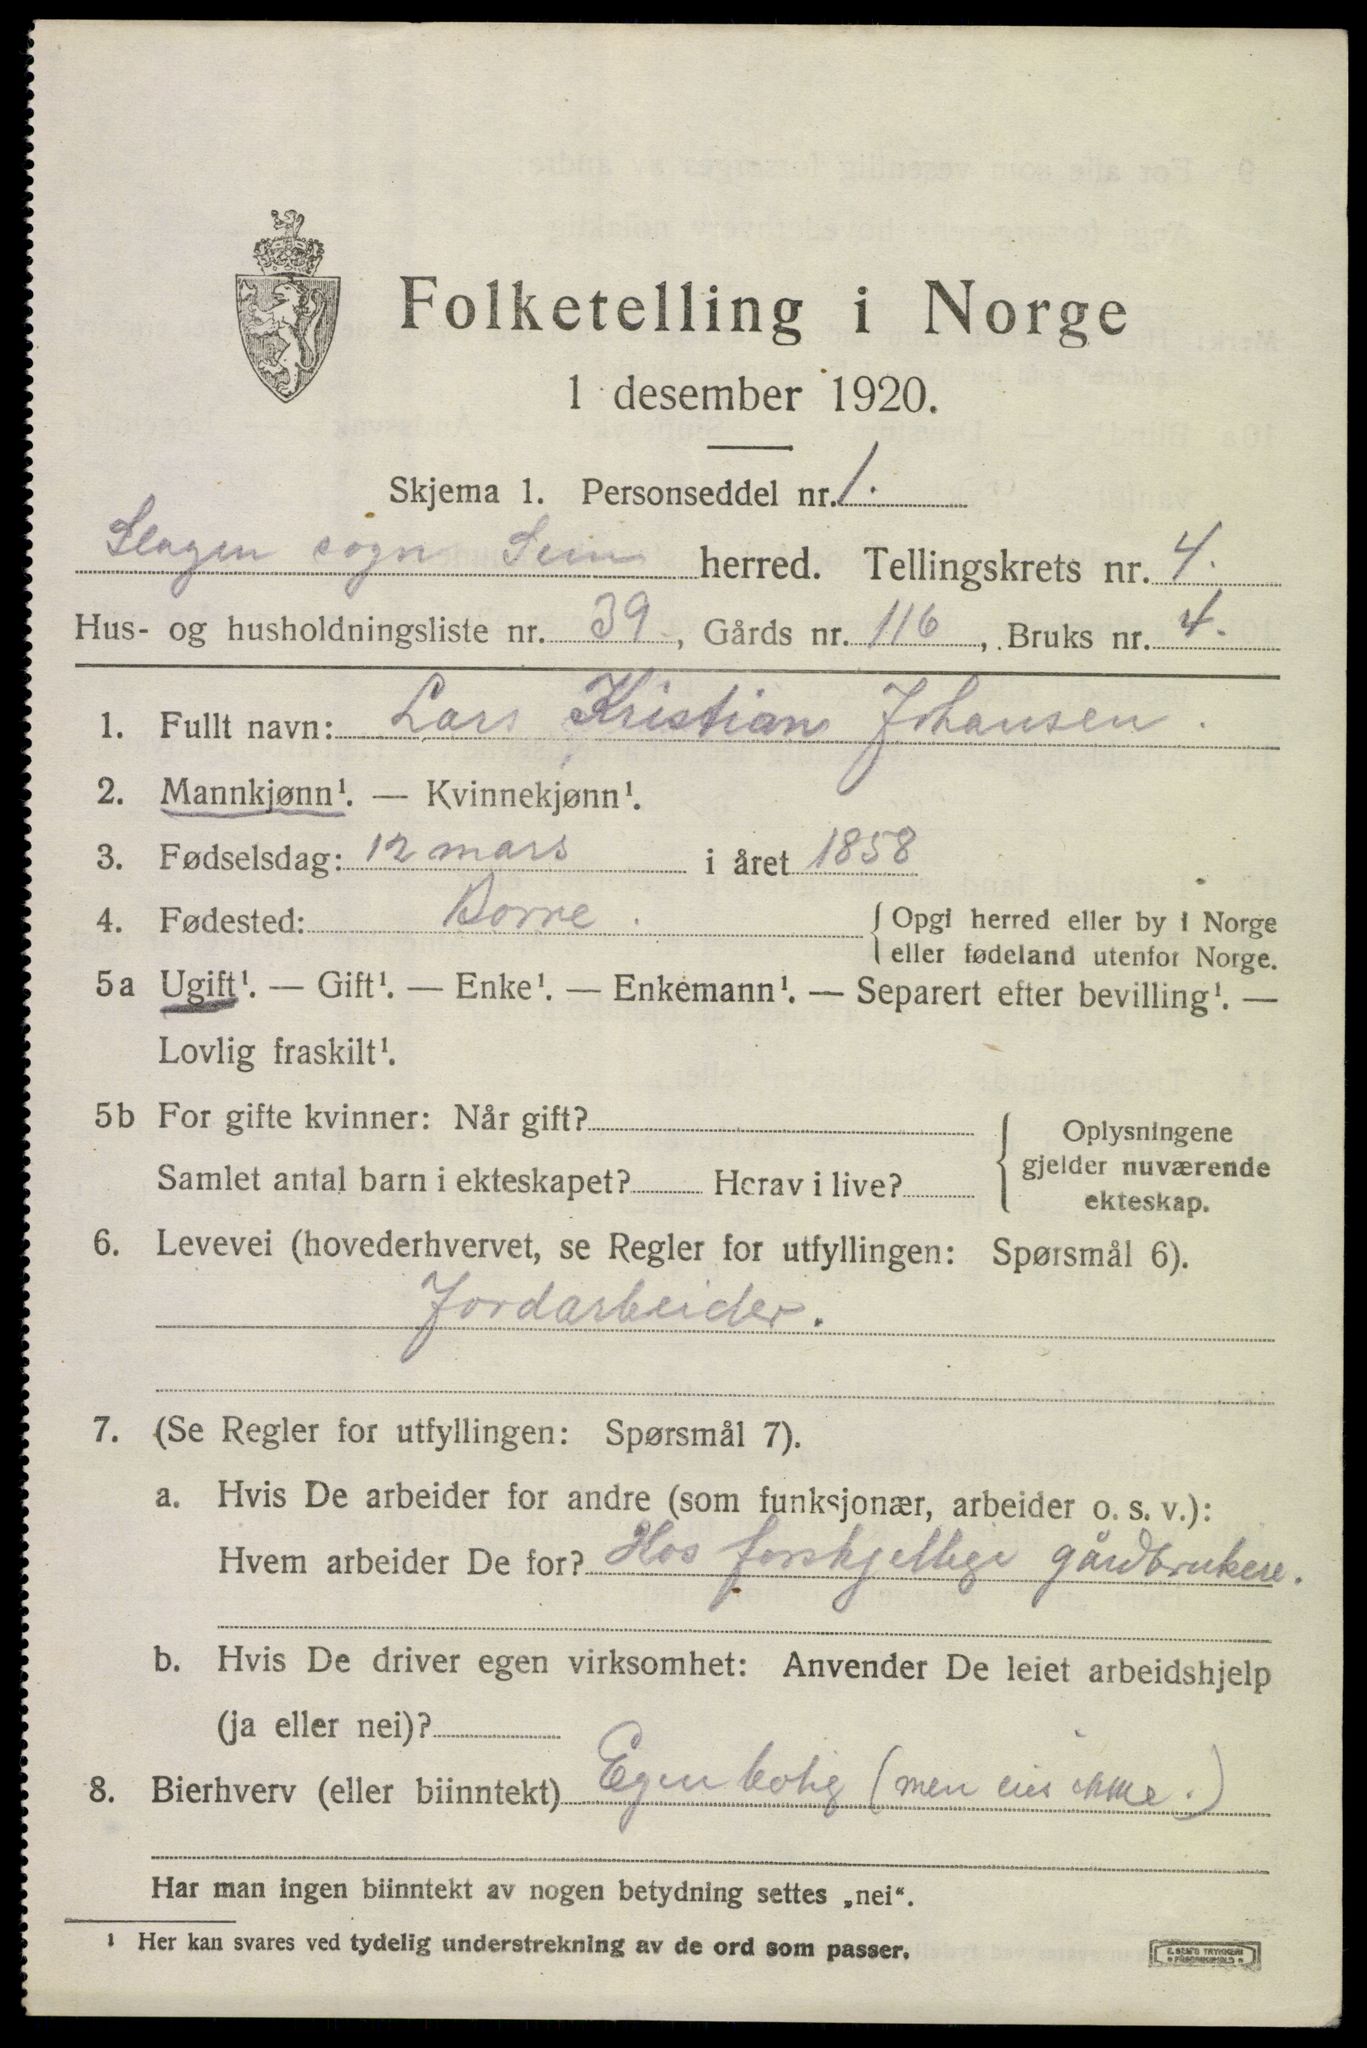 Folketelling i Norge
1 desember 1920.
Skjema 1. Personseddel nr. 1.
Slagen sogn Sem herred. Tellingskrets nr. 4.
Hus- og husholdningsliste nr. 39, Gårds nr. 116, Bruks nr. 4.
1. Fullt navn: Lars Kristian Johansen.
2. Mannkjønn¹. — Kvinnekjønn¹.
3. Fødselsdag: 12 mars i året 1858
4. Fødested: Borre. Opgi herred eller by i Norge
eller fødeland utenfor Norge.
5a Ugift¹. — Gift¹. — Enke¹. — Enkemann¹. — Separert efter bevilling¹. —
Lovlig fraskilt¹.
5b For gifte kvinner: Når gift?
Samlet antal barn i ekteskapet? Herav i live?
Oplysningene
gjelder nuværende
ekteskap.
6. Levevei (hovederhvervet, se Regler for utfyllingen: Spørsmål 6).
Jordarbeider.
7. (Se Regler for utfyllingen: Spørsmål 7).
a. Hvis De arbeider for andre (som funksjonær, arbeider o. s. v.):
Hvem arbeider De for? Hos forskjellige gårdbrukere.
b. Hvis De driver egen virksomhet: Anvender De leiet arbeidshjelp
(ja eller nei)?
8. Bierhverv (eller biinntekt) Egen bolig (men eies ikke.)
Har man ingen biinntekt av nogen betydning settes „nei“.
¹ Her kan svares ved tydelig understrekning av de ord som passer.